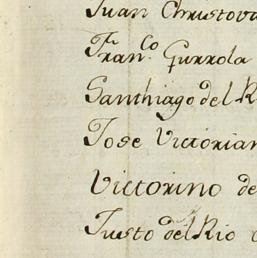 Juan Christova
Fran.co Gurrola
Santhiago del R
Jose Victorian
Victorino de
Justo del Rio